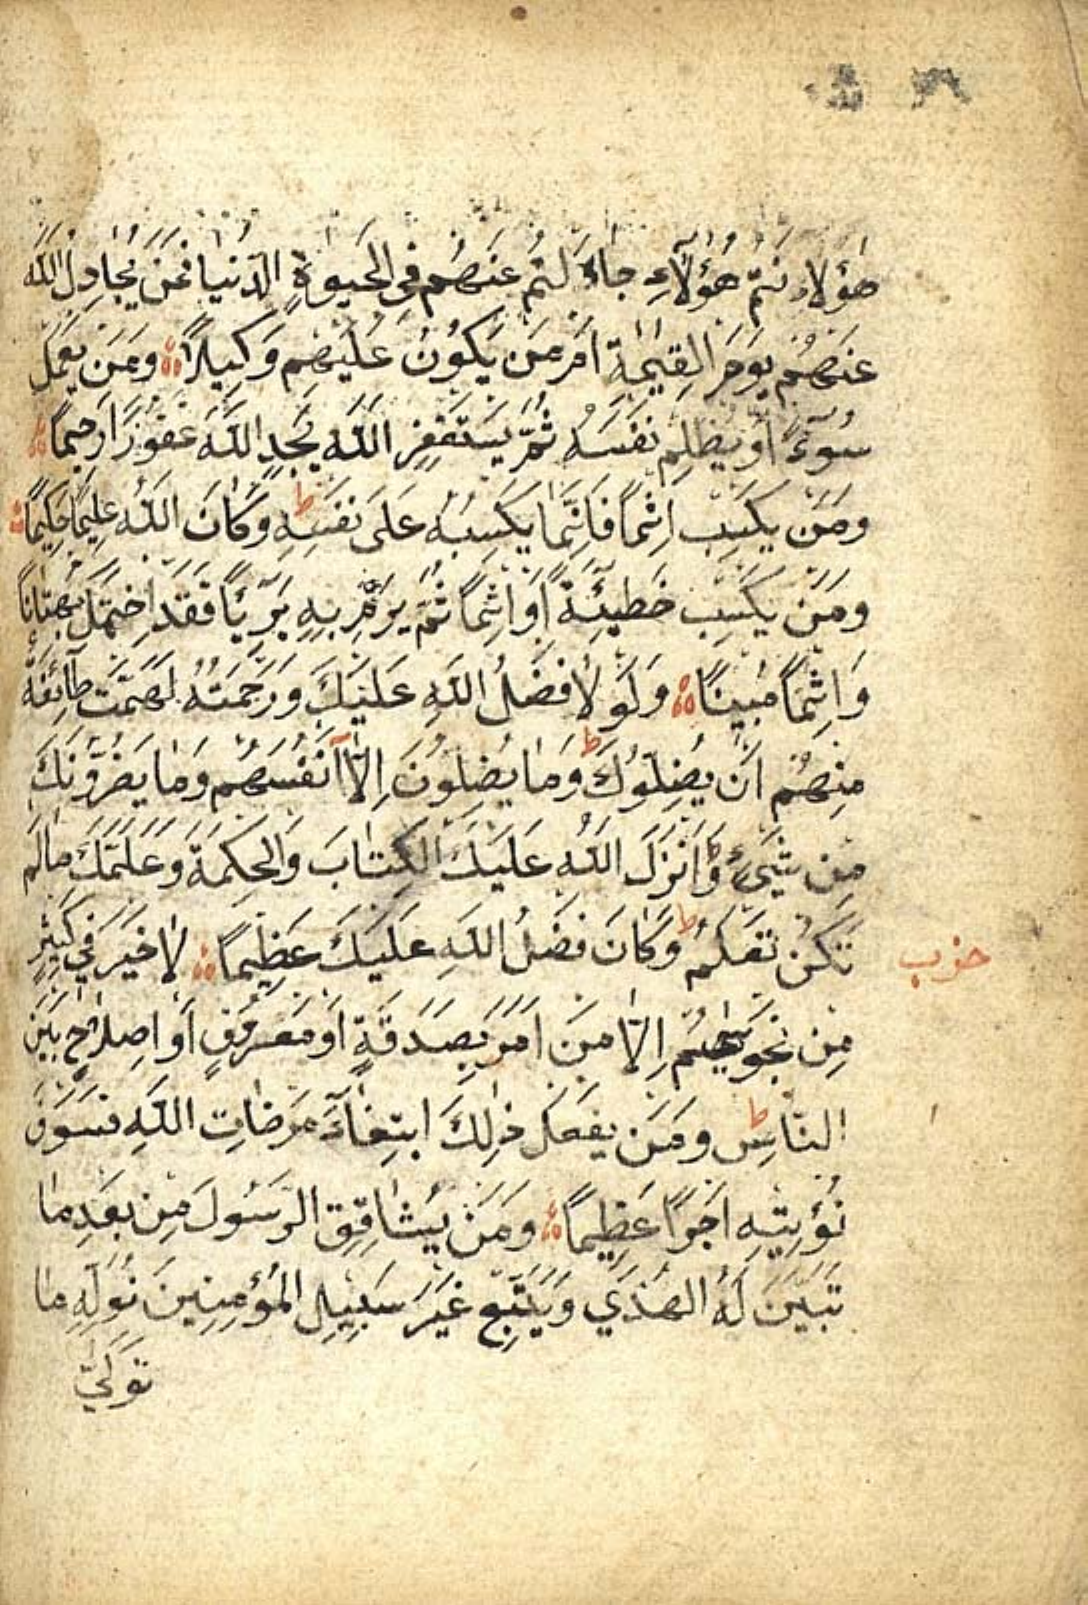 هٰؤُلَاءِ نتُمْ هٰؤُلَاءِ جَادَلْتُمْ عَنْهُمْ فِي الْحَيٰوةِ الدُّنْيَا فَمَنْ يُجَادِلُ اللّٰهَ
عَنْهُمْ يَوْمَ الْقِيٰمَةِ اَمْ مَنْ يَكُونُ عَلَيْهِمْ وَكِيلًا وَمَنْ يَعْمَلْ
سُوءًا اَوْ يَظْلِمْ نَفْسَهُ ثُمَّ يَسْتَغْفِرِ اللّٰهَ يَجِدِ اللّٰهَ غَفُورًا رَحِيمًا
وَمَنْ يَكْسِبْ اِثْمًا فَاِنَّمَا يَكْسِبُهُ عَلَى نَفْسِهِ ط وَكَانَ اللّٰهُ عَلِيمًا حَكِيمًا
وَمَنْ يَكْسِبْ خَطِيئَةً اَوْ اِثْمًا ثُمَّ يَرْمِ بِهِ بَرِيًّا فَقَدِ احْتَمَلَ بُهْتَانًا
وَاِثْمًا مُبِينًا وَلَوْلَا فَضْلُ اللّٰهِ عَلَيْكَ وَرَحْمَتُهُ لَهَمَّتْ طَائِفَةٌ
مِنْهُمْ اَنْ يُضِلُّوكَ ط وَمَا يُضِلُّونَ اِلَّا اَنْفُسَهُمْ وَمَا يَضُرُّونَكَ
مِنْ شَيْءٍ وَاَنْزَلَ اللّٰهُ عَلَيْكَ الْكِتَابَ وَالْحِكْمَةَ وَعَلَّمَكَ مَا لَمْ
تَكُنْ تَعْلَمُ ط وَكَانَ فَضْلُ اللّٰهِ عَلَيْكَ عَظِيمًا لَا خَيْرَ فِي كَثِيرٍ
حزب
مِنْ نَجْوٰيهُمْ اِلَّا مَنْ اَمَرَ بِصَدَقَةٍ اَوْ مَعْرُوفٍ اَوْ اِصْلَاحٍ بَيْنَ
النَّاسِ ط وَمَنْ يَفْعَلْ ذٰلِكَ ابْتِغَاءَ مَرْضَاتِ اللّٰهِ فَسَوْفَ
نُؤْتِيهِ اَجْرًا عَظِيمًا وَمَنْ يُشَاقِقِ الرَّسُولَ مِنْ بَعْدِ مَا
تَبَيَّنَ لَهُ الْهُدٰي وَيَتَّبِعْ غَيْرَ سَبِيلِ الْمُؤْمِنِينَ نُوَلِّهِ مَا
تَوَلّٰي